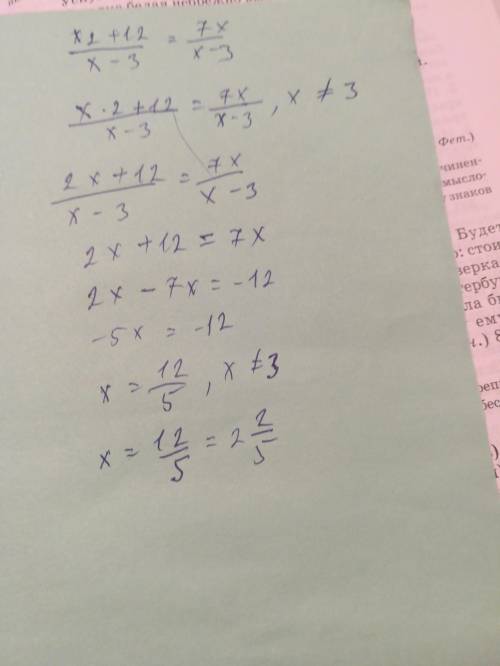 x2+12/x-3 = 7x/x-3
x·2+12/x-3 = 7x/x-3, x ≠ 3
2x+12/x-3 = 7x/x-3
2x+12 = 7x
2x-7x = -12
-5x = -12
x = 12/5, x ≠ 3
x = 12/5 = 2 2/5
Фет.)
чинен-
мысло-
знаков
Будет
стои
верка
ла бы
ему
.) 8